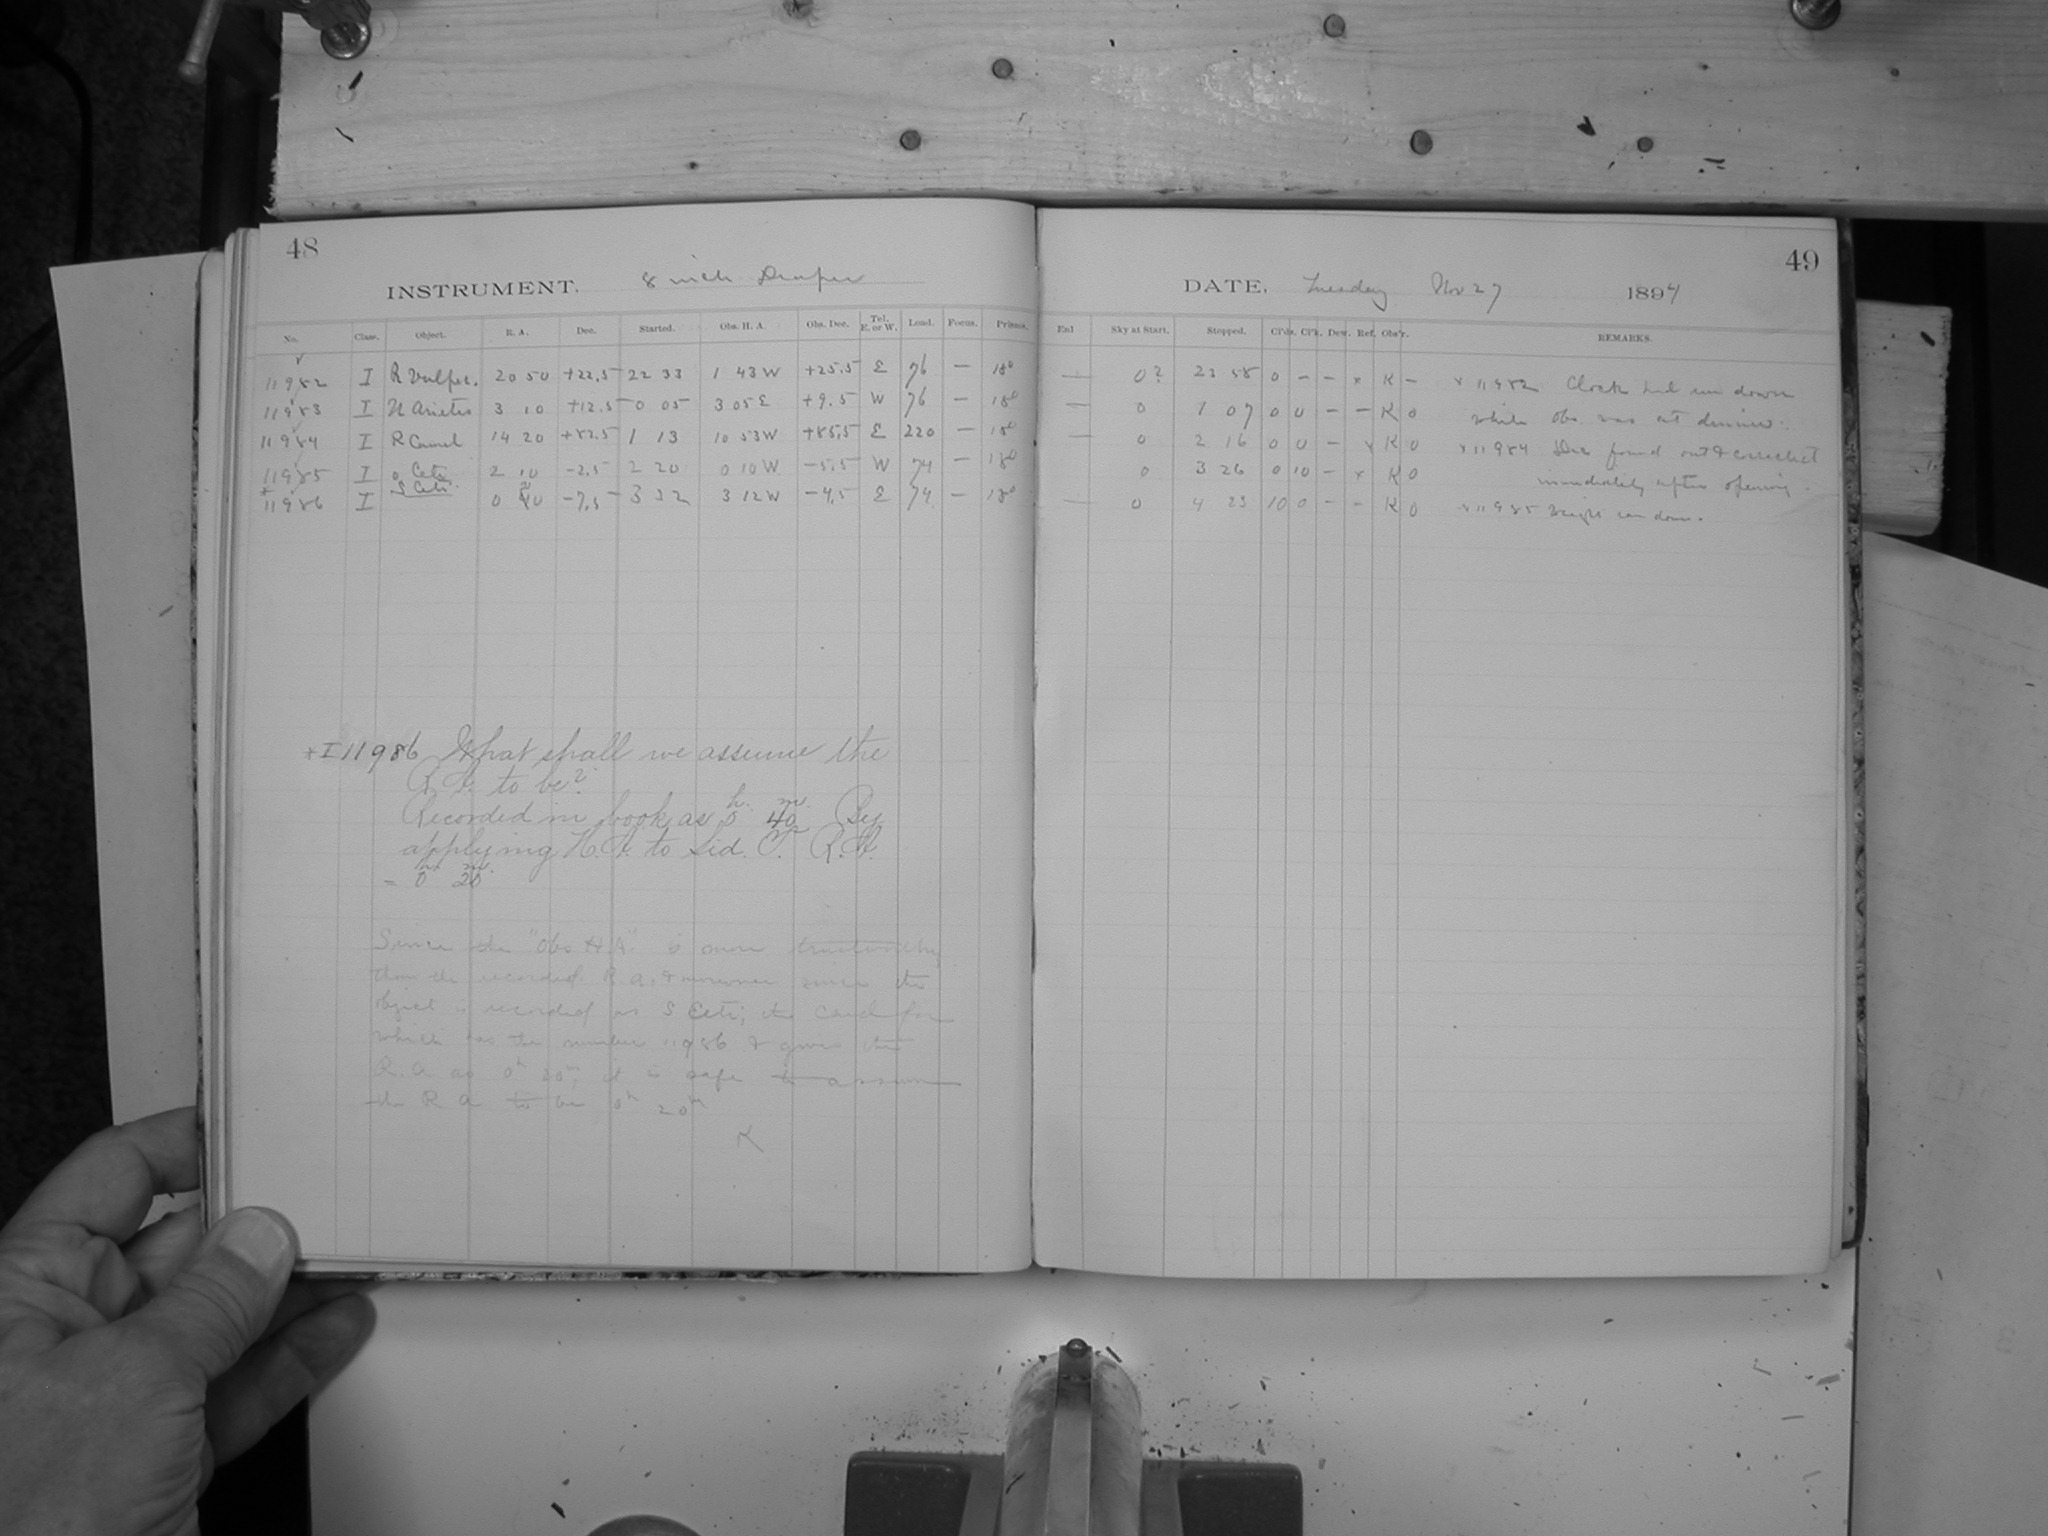 48
INSTRUMENT. 8 inch Draper
No. Class. Object. R. A. Dec. Started. Obs. H. A. Obs. Dec. Tel. E. or W. Load. Focus. Prisms.
11982 I R Vulpec. 20 50 +22.5 22 33 1 43 W +25.5 E 76 — 180
11983 I U Arietis 3 10 +12.5 0 05 3 05 E +9.5 W 76 — 180
11984 I R Camel 14 20 +82.5 1 13 10 53 W +85.5 E 220 — 180
11985 I o Ceti 2 10 -2.5 2 20 0 10 W -5.5 W 74 — 180
11986 I S Ceti 0 20 -7.5 3 32 3 12 W -4.5 E 74 — 180
+ I 11986 What shall we assume the
R.A. to be?
Recorded in book as 0h 40m. By
applying H.A. to Sid. T. R.A.
= 0h 20m
Since the "Obs H.A." is more trustworthy
than the recorded R.A. & moreover since the
object is recorded as S Ceti; the card for
which has the number 11986 & gives the
R.A as 0h 20m, it is safe to assume
the R a to be 0h 20m
K
49
DATE, Tuesday Nov 27 1894
Enl Sky at Start. Stopped. Cl'ds. Cl'k. Dew. Ref. Obs'r. REMARKS.
— 0? 23 58 0 – – x K – x 11982 Clock had run down
— 0 1 07 0 0 – – K 0 while obs. was at dinner.
— 0 2 16 0 0 – x K 0 x 11984 Dec found out & corrected
0 3 26 0 10 – x K 0 immediately after opening.
— 0 4 23 10 0 – – K 0 x 11985 Weight ran down.